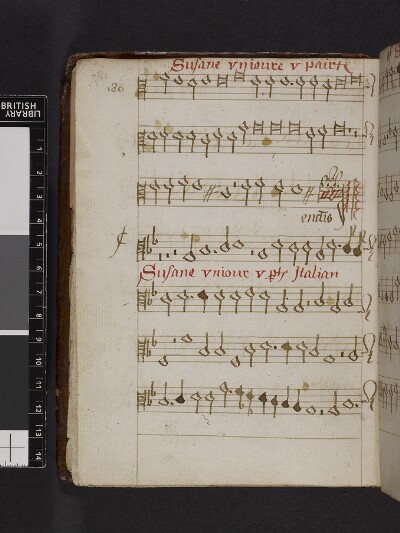 186
Susane vnioure v pairte
Susane vnioure v pts Italian
BRITISH
LIBRARY
1
2
3
4
5
6
7
8
9
10
11
12
13
14